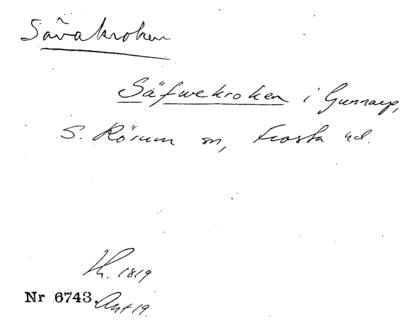 Sävakroken
Säfwekroken i Gunnarp,
S. Rörum sn, Frosta hd.
Lh. 1819
Nr 6743. Ant 19.